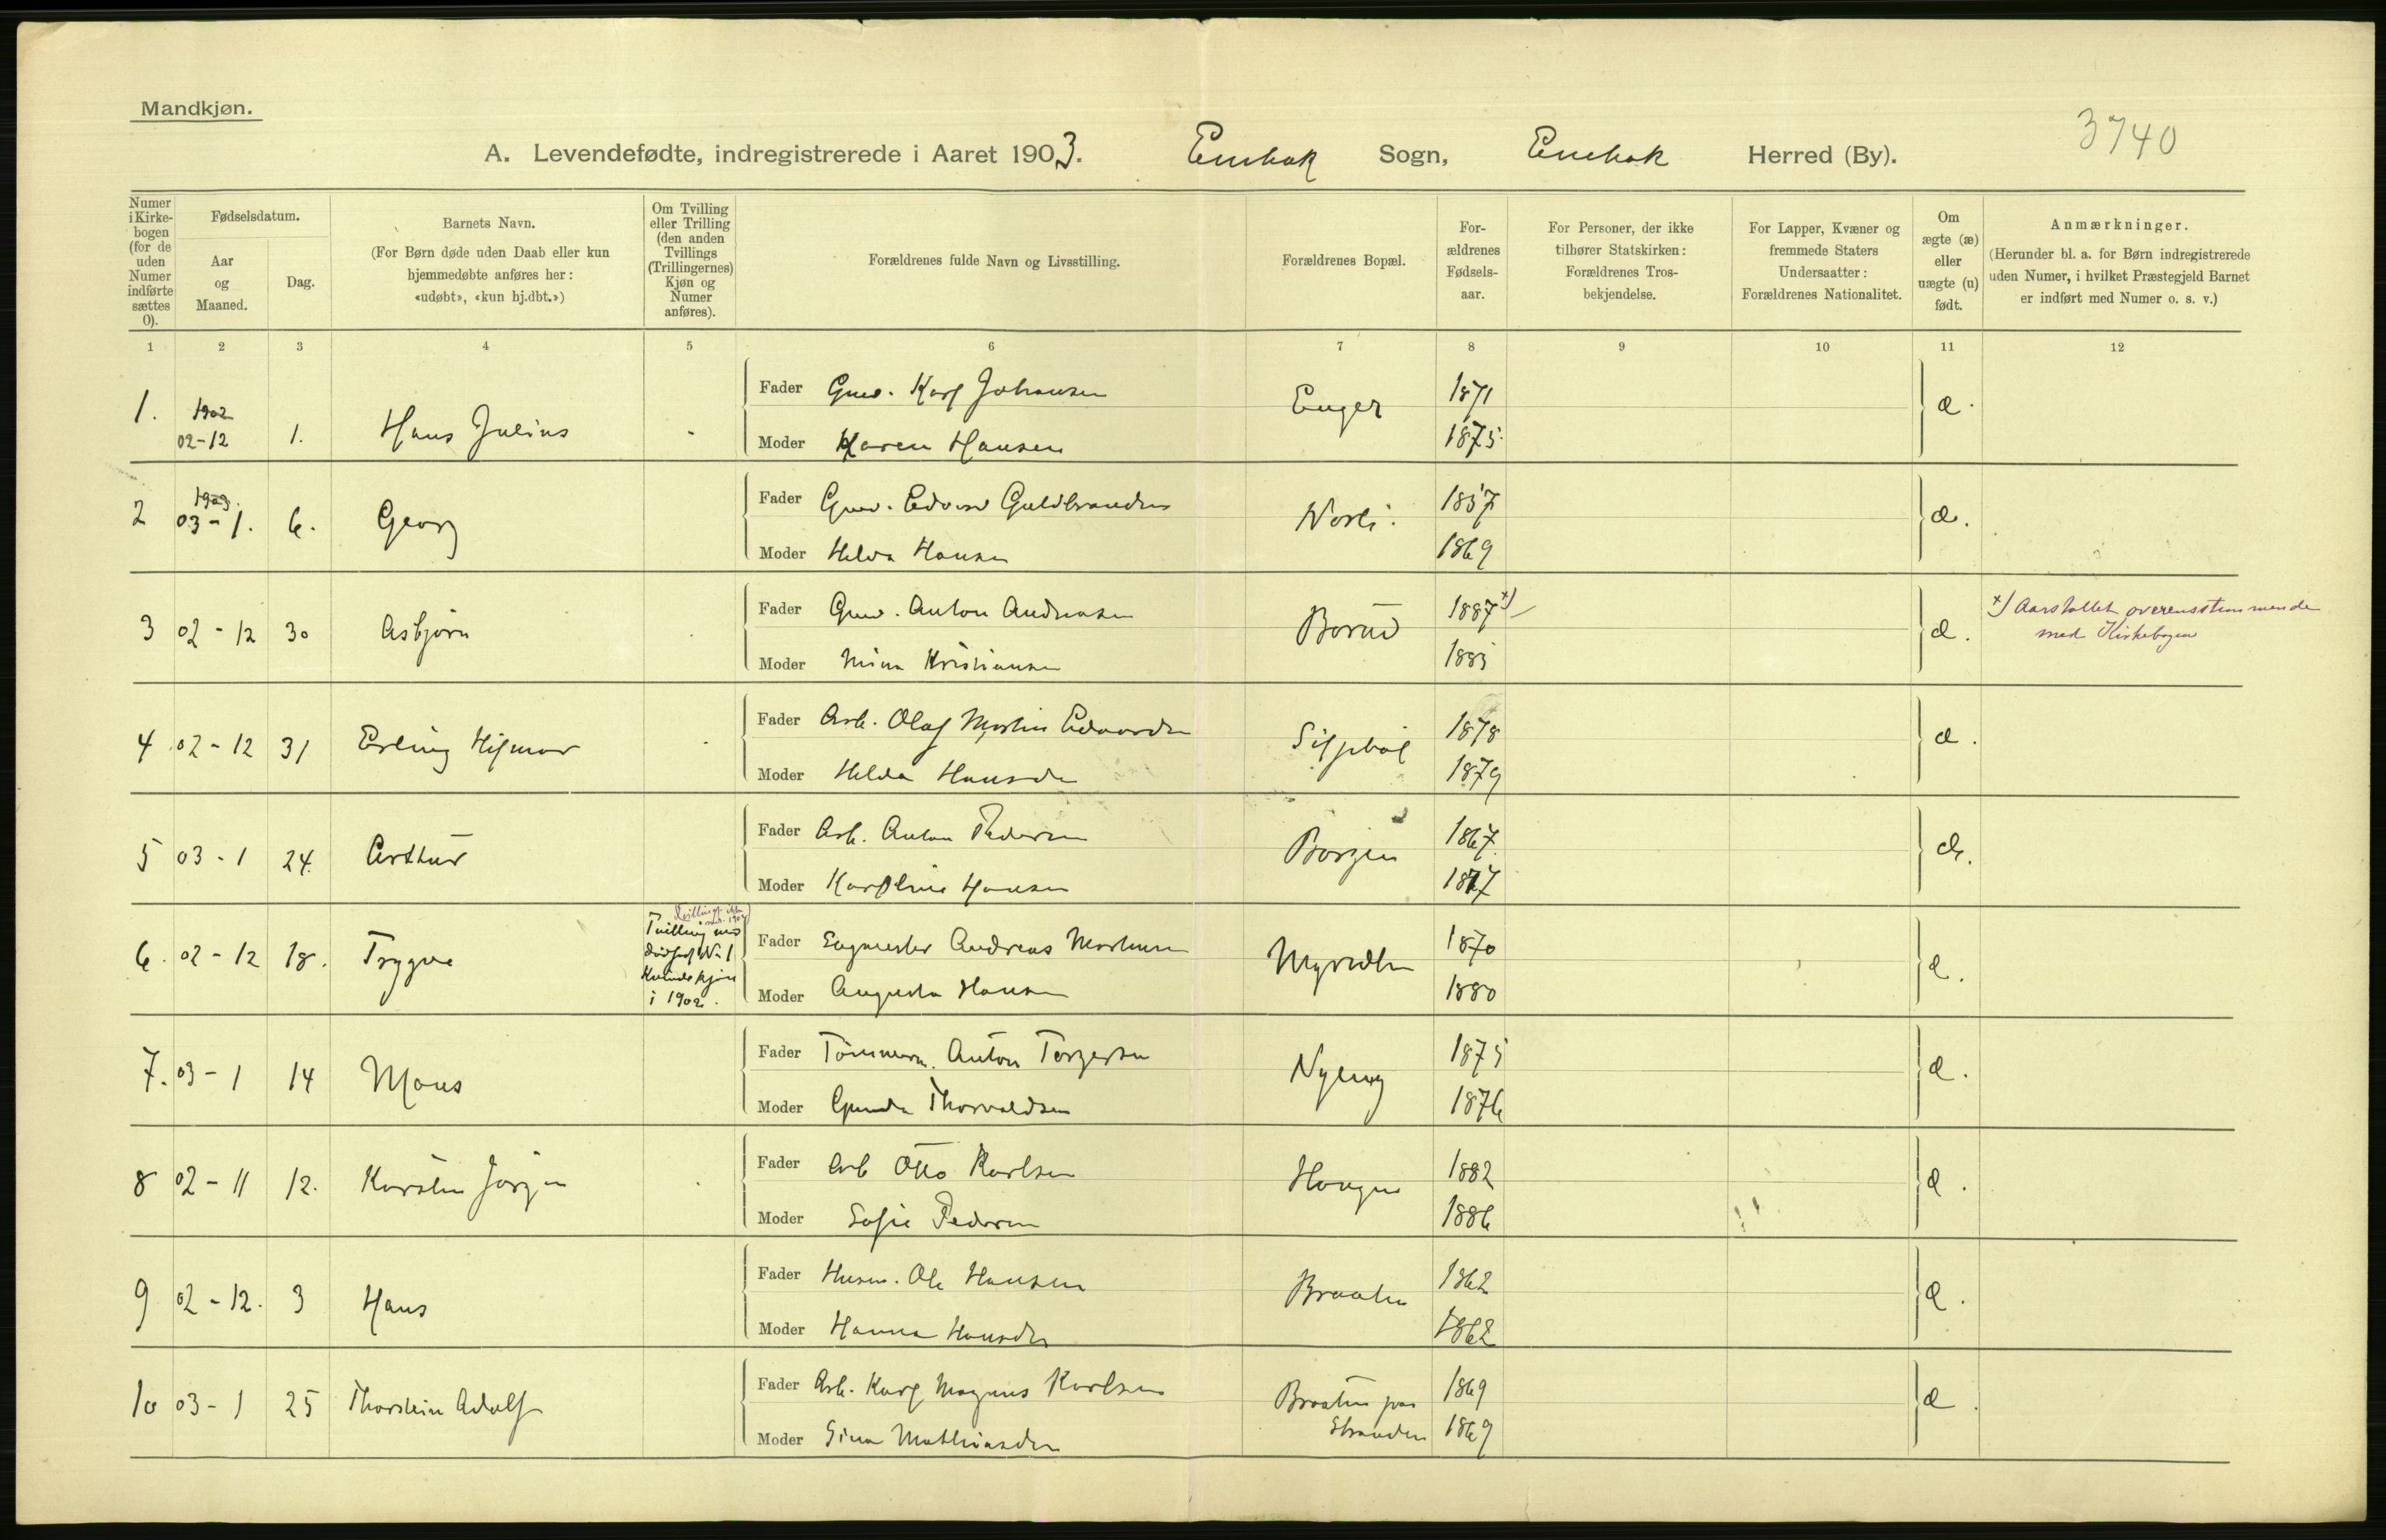 Mandkjøn.
3740
A. Levendefødte, indregistrerede i Aaret 1903. Enebak Sogn, Enebak Herred (By).
Numer i Kirke-bogen (for de uden Numer indførte sættes 0).
Fødselsdatum.
Aar og Maaned.
Dag.
Barnets Navn.
(For Børn døde uden Daab eller kun hjemmedøbte anføres her: «udøbt», «kun hj.dbt.»)
Om Tvilling eller Trilling (den anden Tvillings (Trillingernes) Kjøn og Numer anføres).
Forældrenes fulde Navn og Livsstilling.
Forældrenes Bopæl.
For-ældrenes Fødsels-aar.
For Personer, der ikke tilhører Statskirken: Forældrenes Tros-bekjendelse.
For Lapper, Kvæner og fremmede Staters Undersaatter: Forældrenes Nationalitet.
Om ægte (æ) eller uægte (u) født.
Anmærkninger.
(Herunder bl. a. for Børn indregistrerede uden Numer, i hvilket Præstegjeld Barnet er indført med Numer o. s. v.)
1 2 3 4 5 6 7 8 9 10 11 12
1. 1902 02-12 1. Hans Julius Fader Gmd. Karl Johansen Enger 1871 æ.
Moder Karen Hansen 1875
2 1903. 03-1. 6. Georg Fader Gmd. Edvard Guldbrandsen Norli. 1857 æ.
Moder Helda Hansen 1869
3 02-12 30 Asbjørn Fader Gmd. Anton Andreasen Borud 1887 x) æ. x) Aarstallet overensstemmende
med Kirkebogen
Moder Mina Kristiansen 1883
4 02-12 31 Erling Hilmar Fader Arb. Olaf Martin Edvardsen 1878 æ.
Moder Helda Hansdr 1879
5 03-1 24. Arthur Fader Arb. Anton Pedersen Borgen 1867. æ.
Moder Karoline Hansen 1877
6. 02-12 18. Trygve Tvilling med
dødfødt No 1
Kvindekjøn
i 1902. Fader Sagmester Andreas Martinsen 1870 æ.
Moder Augusta Hansen 1880
7. 03-1 14 Mons Fader Tømmerm. Anton Torgersen Nyeng 1875 æ.
Moder Gunda Thorvaldsen 1876
8 02-11 12. Karsten Jørgen Fader Arb Otto Karlsen Haugen 1882 æ.
Moder Sofie Pedersen 1886
9 02-12. 3 Hans Fader Husm. Ole Hansen Braaten 1862 æ.
Moder Hanna Hansdr 1862
10 03-1 25 Thorstein Adolf Fader Arb. Karl Magnus Karlsen Braaten paa
Stranden 1869 æ.
Moder Gina Mathiasdr 1869